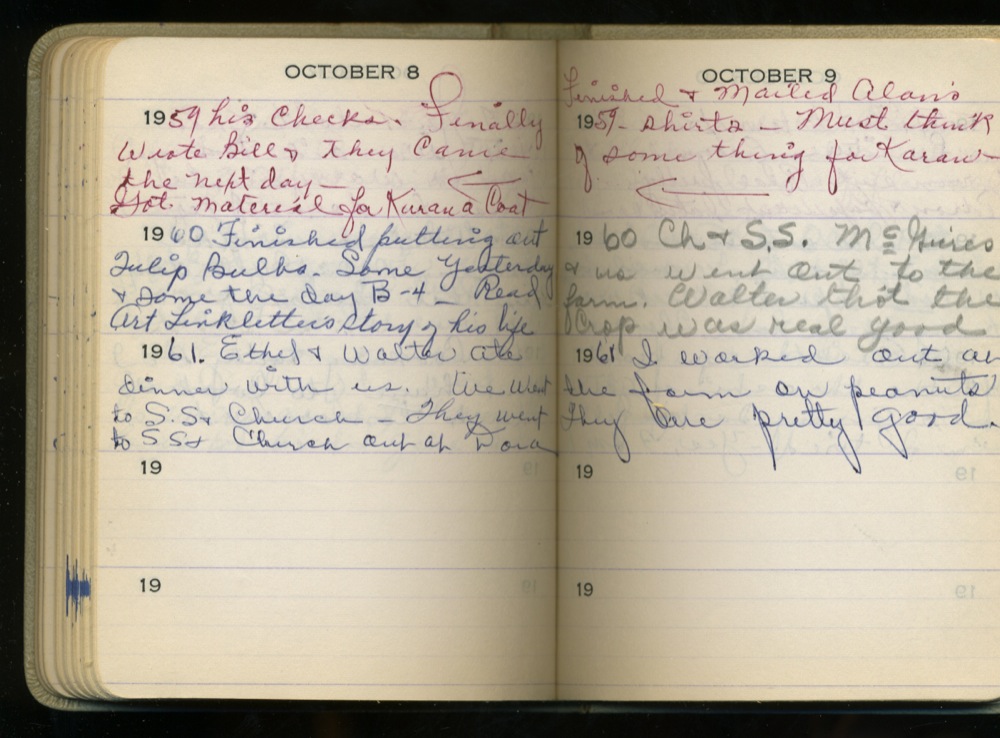 OCTOBER 8
1959 his Checks. Finally
Wrote Bill & they Came
the next day —
Got material for Karan a Coat
1960 Finished putting out
Tulip Bulbs. Some Yesterday
& some the day B-4 — Read
Art Linkletters story of his life
1961. Ethel & Walter ate
dinner with us. We went
to S.S & Church — They went
to S S & Church out at Dora
19
19
OCTOBER 9
Finished & Mailed Alans
1959 - shirts — Must think
of some thing for Karan —
1960 Ch & S.S. McGuires
& us went out to the
farm. Walter thot the
Crop was real good
1961 I worked out at
the farm on peanuts
they are pretty good.
19
19